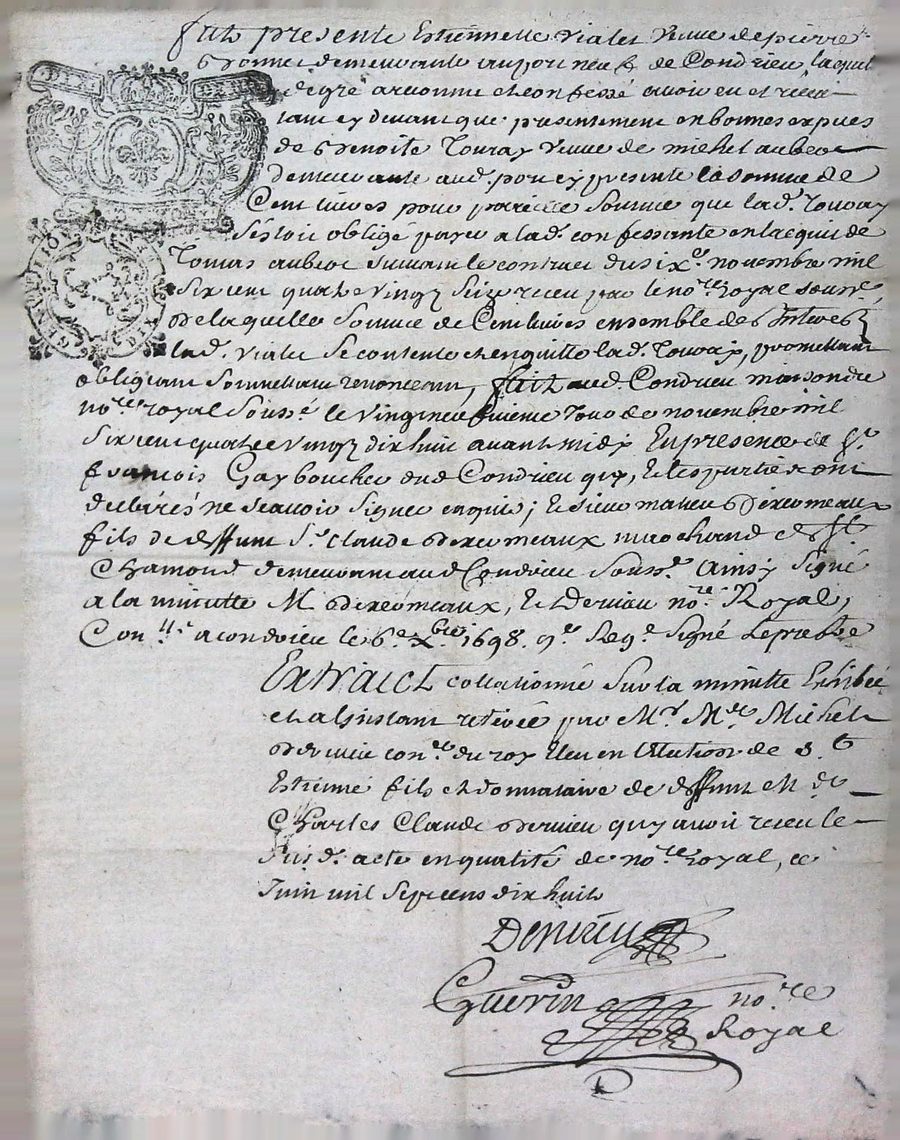 fut presente Estiennette Vialet veuve de pierre
Bonnet demeurante au port neuf de Condrieu, laquelle
de gré a reconnu et confessé avoir eu et receu
tant cy devant que presentement en bonnes espèces
de Benoite Touray veuve de michel aubert
demeurante aud. port cy presente la somme de
Cent livres pour pareille somme que lad. Touray
s'estoit obligé payer a lad. confessante en lacquit de
Tomas aubert suivant le contract du six.e novembre mil
six cent quatre vingt seize receu par le no.re Royal souss.é
de laquelle somme de Cent livres ensemble des Interest
lad. vialet se contente et en quitte lad. Touray, promettant
obligeant soumettant renonceant, fait aud. Condrieu maison du
no.re royal souss.é le vingt neufvieme Jour de novembre mil
six cent quatre vingt dix huit avant midy En presence de S.r
françois Gay boucher dud Condrieu qui, et les parties ont
declarés ne scavoir signer enquis; et sieur mathieu
fils de deffunt S.r Claude marchand de S.t
Chamond demeurant aud Condrieu souss.é Ainsy Signé
a la minutte M. et Dervieu no.re Royal,
Con.llé a condrieu le 6.e Xbre 1698. Signé Leprebtre
Extraict collationné sur la minutte Exhibée
et a l'instant retirée par M.r M.re Michel
Dervieu con.er du roy Eleu en l'Election de S.t
Estienne fils et donnataire de deffunt M.re
Charles Claude Dervieu qui avoit receu le
susd. acte en qualité de no.re Royal, ce
Juin mil sept cens dix huit
Dervieu
Guerin no.re
Royal